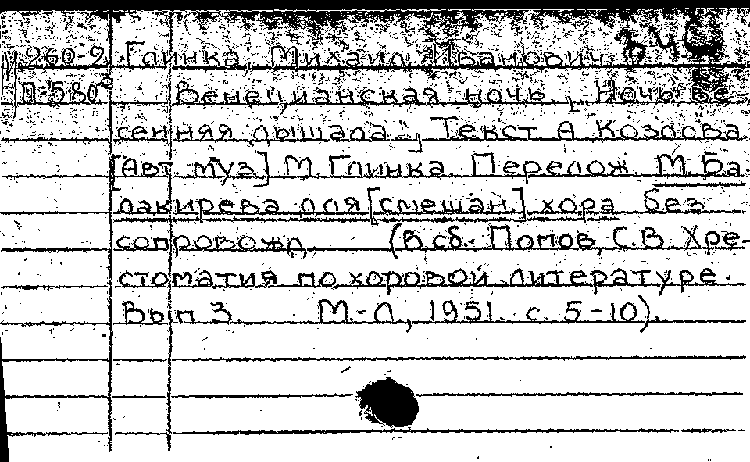 260-2 Глинка, Михаил Иванович
П-580 Венецианская ночь. [„Ночь ве-
сенняя дышала“,] Текст А Козлова
[Авт муз] М. Глинка Перелож М. Ба
лакирева для [смешан.] хора без
сопровожд. (В сб.: Попов, С.В. Хре-
стоматия по хоровой литературе.
Вып 3. М-Л., 1951. с. 5-10).